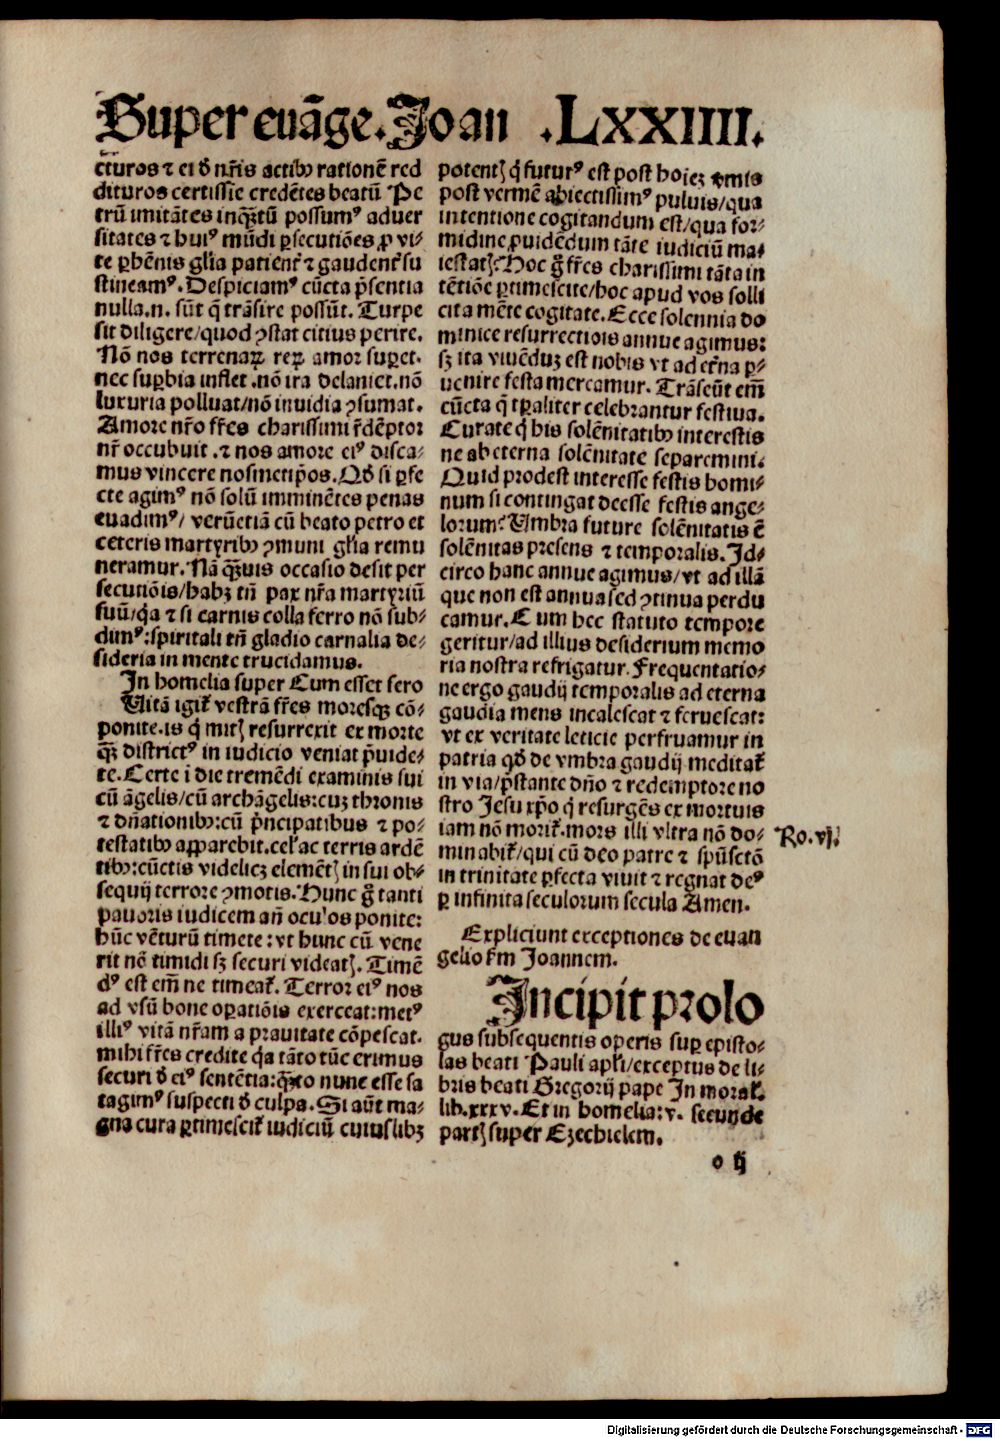 Super euāge. Joan .LXXIIII.
cturos ⁊ ei ď nr̄is actibꝰ rationē red
dituros certissie credētes beatū Pe
trū imitātes inqꝫtū possumꝰ aduer
sitates ⁊ huiꝰ mūdi ꝑsecutiōes ꝓ vi⸗
te ꝑhēnis gl̄ia patient̄ ⁊ gaudent̄ su
stineamꝰ. Despiciamꝰ cūcta p̄sentia
nulla.n. sūt q̄ trāsire possūt. Turpe
sit diligere/quod ꝯstat citius perire.
Nō nos terrenaꝝ reꝝ amor suꝑet.
nec suꝑbia inflet .nō ira delaniet.nō
luxuria polluat/nō inuidia ꝯsumat.
Amore nr̄o fr̄es charissimi r̄dēptor
nr̄ occubuit .⁊ nos amore eiꝰ disca⸗
mus vincere nosmetip̄os. Qď si ꝑfe
cte agimꝰ nō solū imminētes penas
euadimꝰ/ verūetiā cū beato petro et
ceteris martyribꝰ ꝯmuni gl̄ia remu
neramur. Nā qꝫuis occasio desit per
secutiōis/habꝫ tn̄ pax nr̄a martyriū
suū/q̄a ⁊ si carnis colla ferro nō sub⸗
dimꝰ:spiritali tn̄ gladio carnalia de⸗
sideria in mente trucidamus.
In homelia super Cum esset sero
Uitā igit᷑ vestrā fr̄es moresqꝫ cō⸗
ponite.is q̄ mitꝭ resurrexit ex morte
qꝫ districtꝰ in iudicio veniat p̄uide⸗
te. Certe i die tremēdi examinis sui
cū āgelis/cū archāgelis:cuꝫ thronis
⁊ dn̄ationibꝰ:cū p̄ncipatibus ⁊ po⸗
testatibꝰ aꝑparebit.cel'ac terris ardē
tibꝰ:cūctis videlicꝫ elemētꝭ in sui ob⸗
sequij terrore ꝯmotis. Hunc g̊ tanti
pauoris iudicem an̄ ocu'os ponite:
hūc vēturū timete : vt hunc cū vene
rit nō timidi sꝫ securi videatꝭ. Timē
dꝰ est em̄ ne timeat᷑. Terror eiꝰ nos
ad vsū bone oꝑatiōis exerceat:metꝰ
illiꝰ vitā nr̄am a prauitate cōpescat.
mihi fr̄es credite q̄a tāto tūc erimus
securi ď eiꝰ sentētia:qꝫto nunc esse sa
tagimꝰ suspecti ď culpa. Si aūt ma⸗
gna cura ꝑtimescit᷑ iudiciū cuiuslibꝫ
potentꝭ q̄ futurꝰ est post hoieꝫ
post vermē abiectissimꝰ puluis/qua
intentione cogitandum est/qua for⸗
midine ꝓuidēdum tāte iudiciū ma⸗
iestatꝭ? Hoc g̊ fr̄es charissimi tāta in
tētiōe ꝑtimescite/hoc apud vos solli
cita mēte cogitate. Ecce solennia do
minice resurrectiois annue agimus:
sꝫ ita viuēduꝫ est nobis vt ad et̄na ꝑ⸗
uenire festa mereamur. Trāseūt em̄
cūcta q̄ tꝑaliter celebrantur festiua.
Curate q̄ his solēnitatibꝰ interestis
ne ab eterna solēnitate separemini.
Quid prodest interesse festis homi⸗
num si contingat deesse festis ange⸗
lorum? Umbra future solēnitatis ē
solēnitas presens ⁊ temporalis. Jd⸗
circo hanc annue agimus/vt ad illā
que non est annua sed ꝯtinua perdu
camur. Cum hec statuto tempore
geritur/ad illius desiderium memo
ria nostra refrigatur. Frequentatio⸗
ne ergo gaudij temporalis ad eterna
gaudia mens incalescat ⁊ feruescat:
vt ex veritate leticie perfruamur in
patria qď de vmbra gaudij meditat᷑
in via/p̄stante dn̄o ⁊ redemptore no
stro Jesu xp̄o q̄ resurgēs ex mortuis
iam nō morit᷑.mors illi vltra nō do⸗
minabit᷑/qui cū deo patre ⁊ spūsctō
in trinitate ꝑfecta viuit ⁊ regnat deꝰ
ꝑ infinita seculorum secula Amen.
Ro.vj.
Expliciunt exceptiones de euan
gelio sm̄ Joannem.
Jncipit prolo
gus subsequentis operis suꝑ episto⸗
las beati Pauli apl̄i/exceptus de li⸗
bris beati Gregorij pape Jn moral᷑.
lib.xxxv. Et in homelia:v. secunde
partꝭ super Ezechielem.
o ij
Digitalisierung gefördert durch die Deutsche Forschungsgemeinschaft - DFG